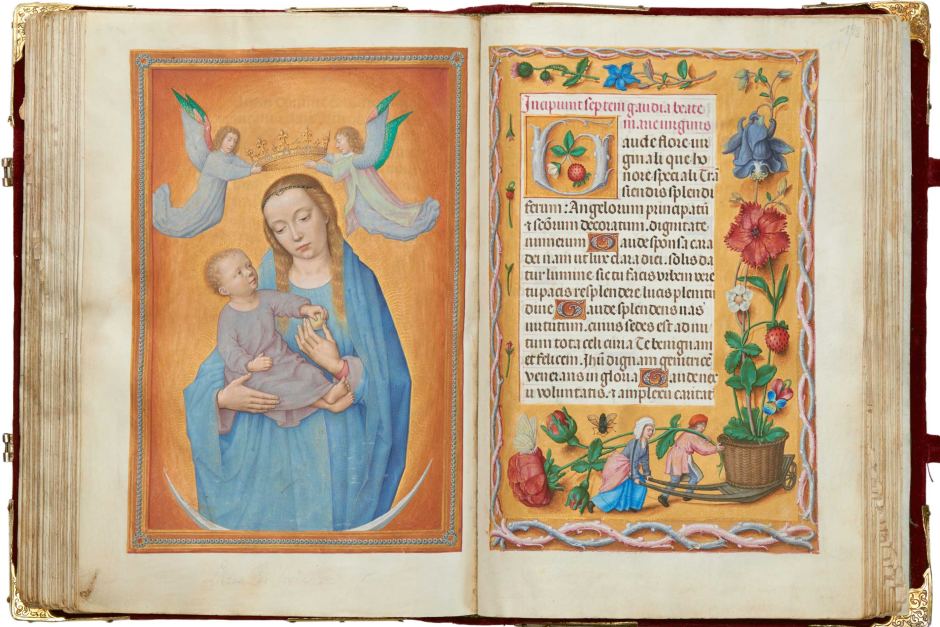 Incipiunt septem gaudia beate
marie virginis
Gaude flore vir
ginali que ho
nore speciali Trā
siendis splendi
ferum: Angelorum principatū
& scōrum decoratum. dignitate
numerum Gaude sponsa cara
dei nam ut lux clara diei. solis da
tur lumine sic tu facis urbem vere
tu pacis resplendere lucis plenitu
dine Gaude splendens vas
virtutum. cuius sedes est ad nu
tum tota celi curia Te benignam
et felicem. Jhū dignam genitricē
venerans in gloria Gaude nex
u voluntatis. & amplexu caritat